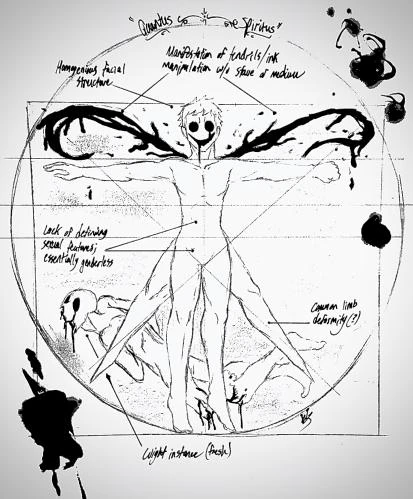 Homogenous facial
structure
Manifestation of tendrils/ink
manipulation w/o stave or medium
Lack of defining
sexual features;
essentially genderless
Common limb
deformity(?)
instance (fresh)